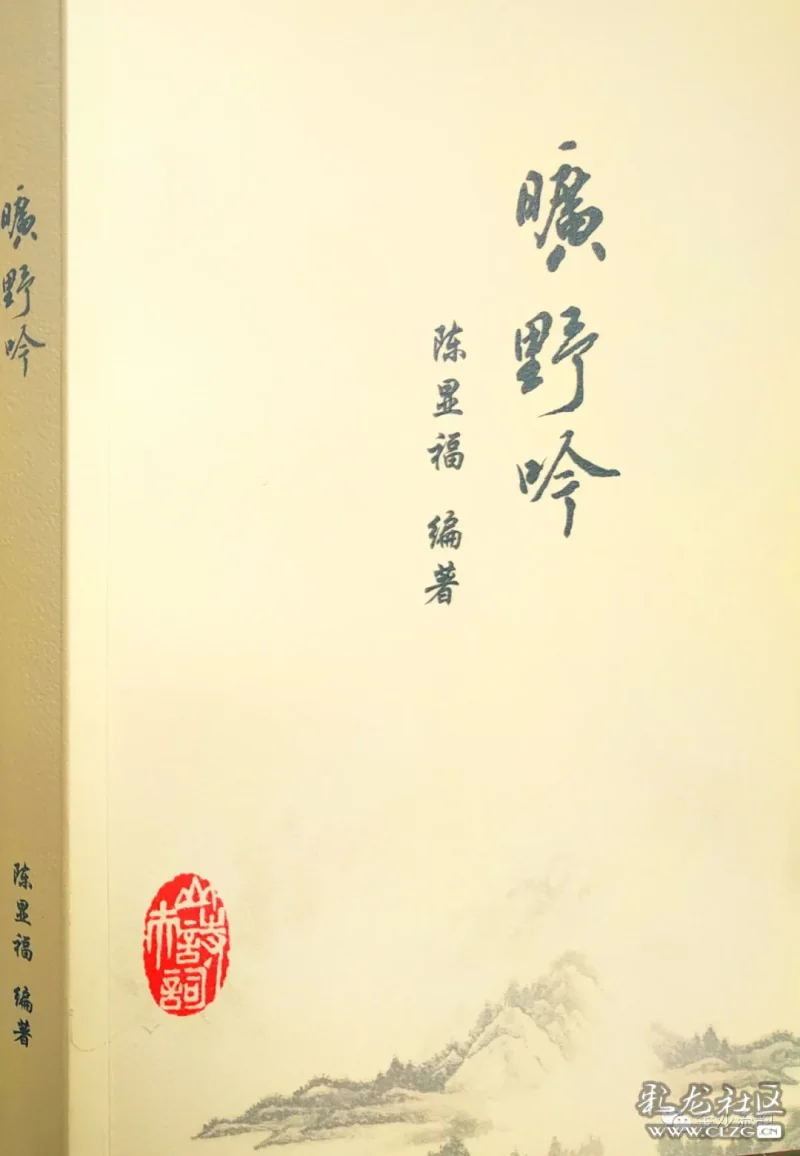 曠野吟
陈显福 编著
曠野吟
陈显福 编著
诗詞
彩龙社区
WWW.CLZG.CN